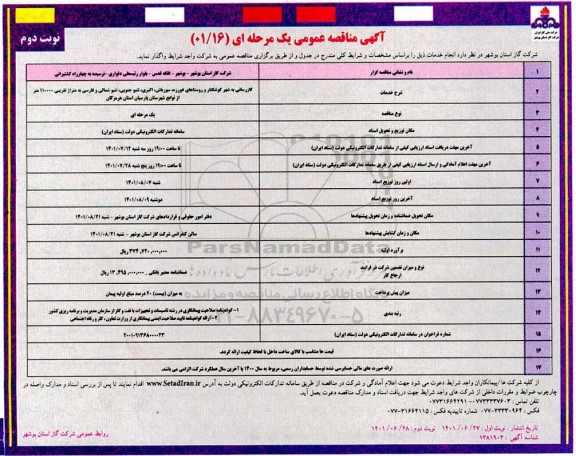 آگهی مناقصه عمومی یک مرحله ای (۰۱/۱۶)
نوبت دوم
شرکت گاز استان بوشهر در نظر دارد انجام خدمات ذیل را براساس مشخصات و شرایط کلی مندرج در جدول و از طریق برگزاری مناقصه عمومی به شرکت واجد شرایط واگذار نماید.
۱ نام و نشانی مناقصه گزار شرکت گاز استان بوشهر - بوشهر - فلکه قدس - بلوار رئیسعلی دلواری - نرسیده به چهارراه کشتیرانی
۲ شرح خدمات گازرسانی به شهر کوشکنار و روستاهای فومستان
از توابع شهرستان پارسیان استان هرمزگان
۳ نوع مناقصه یک مرحله ای
۴ مکان توزیع و تحویل اسناد سامانه تدارکات الکترونیکی دولت (ستاد ایران)
۵ آخرین مهلت دریافت اسناد ارزیابی کیفی از سامانه تدارکات الکترونیکی دولت (ستاد ایران) تا ساعت ۱۹:۰۰ روز سه شنبه ۱۴۰۱/۰۷/۱۲
۶ آخرین مهلت اعلام آمادگی و ارسال اسناد ارزیابی کیفی از طریق سامانه تدارکات الکترونیکی دولت (ستاد ایران) تا ساعت ۱۹:۰۰ روز پنج شنبه ۱۴۰۱/۰۷/۲۸
۷ اولین روز توزیع اسناد شنبه ۱۴۰۱/۰۸/۰۷
۸ آخرین روز توزیع اسناد دوشنبه ۱۴۰۱/۰۸/۰۹
۹ مکان تحویل ضمانتنامه و زمان تحویل پیشنهادها دفتر امور حقوقی و قراردادهای شرکت گاز استان بوشهر - شنبه ۱۴۰۱/۰۸/۲۱
۱۰ مکان و زمان گشایش پیشنهادها سالن کنفرانس شرکت گاز استان بوشهر - شنبه ۱۴۰۱/۰۸/۲۱
۱۱ برآورد اولیه ۳۷۴,۷۲۰,۰۰۰,۰۰۰ ریال
۱۲ نوع و میزان تضمین شرکت در فرایند ارجاع کار ضمانتنامه معتبر بانکی ۱۳,۴۹۵,۰۰۰,۰۰۰ ریال
۱۳ میزان پیش پرداخت به میزان (بیست) ۲۰ درصد مبلغ اولیه پیمان
۱۴ رتبه بندی ۱- گواهینامه صلاحیت پیمانکاری در رشته تاسیسات و تجهیزات یا نفت و گاز از سازمان مدیریت و برنامه ریزی کشور
۲- ارائه گواهینامه تایید صلاحیت ایمنی پیمانکاری از وزارت تعاون، کار و رفاه اجتماعی
۱۵ شماره فراخوان در سامانه تدارکات الکترونیکی دولت (ستاد ایران) ۲۰۰۱۰۹۱۳۶۸۰۰۰۰۲۳
۱۶ قیمت ها متناسب با کالای ساخت داخل با لحاظ کیفیت ارائه گردد.
۱۷ ارائه صورت های مالی حسابرسی شده توسط حسابداران رسمی، مربوط به سال ۱۴۰۰ یا آخرین سال عملکرد شرکت الزامی می باشد.
از کلیه شرکت ها/پیمانکاران واجد شرایط دعوت می شود جهت اعلام آمادگی و شرکت در مناقصه از طریق سامانه تدارکات الکترونیکی دولت به آدرس www.SetadIran.ir اقدام نمایند تا پس از بررسی اسناد و مدارک واصله در
چارچوب ضوابط و مقررات داخلی از شرکت های واجد شرایط جهت دریافت اسناد و مدارک مناقصه دعوت بعمل آید.
تلفن تماس: ۰۷۷۳۳۳۳۷۶۰۳-۰۷۷۳۱۶۶۴۲۹۱
فکس: ۰۷۷-۳۳۳۴۰۹۶۴ شماره تاییدیه فکس: ۰۷۷-۳۱۶۶۴۱۱۵
تاریخ انتشار: نوبت اول: ۱۴۰۱/۰۶/۲۷ نوبت دوم: ۱۴۰۱/۰۶/۲۸
شناسه آگهی: ۱۳۸۱۹۰۳
روابط عمومی شرکت گاز استان بوشهر
ParsNamadData
۰۲۱-۸۸۳۴۹۶۷۰-۵